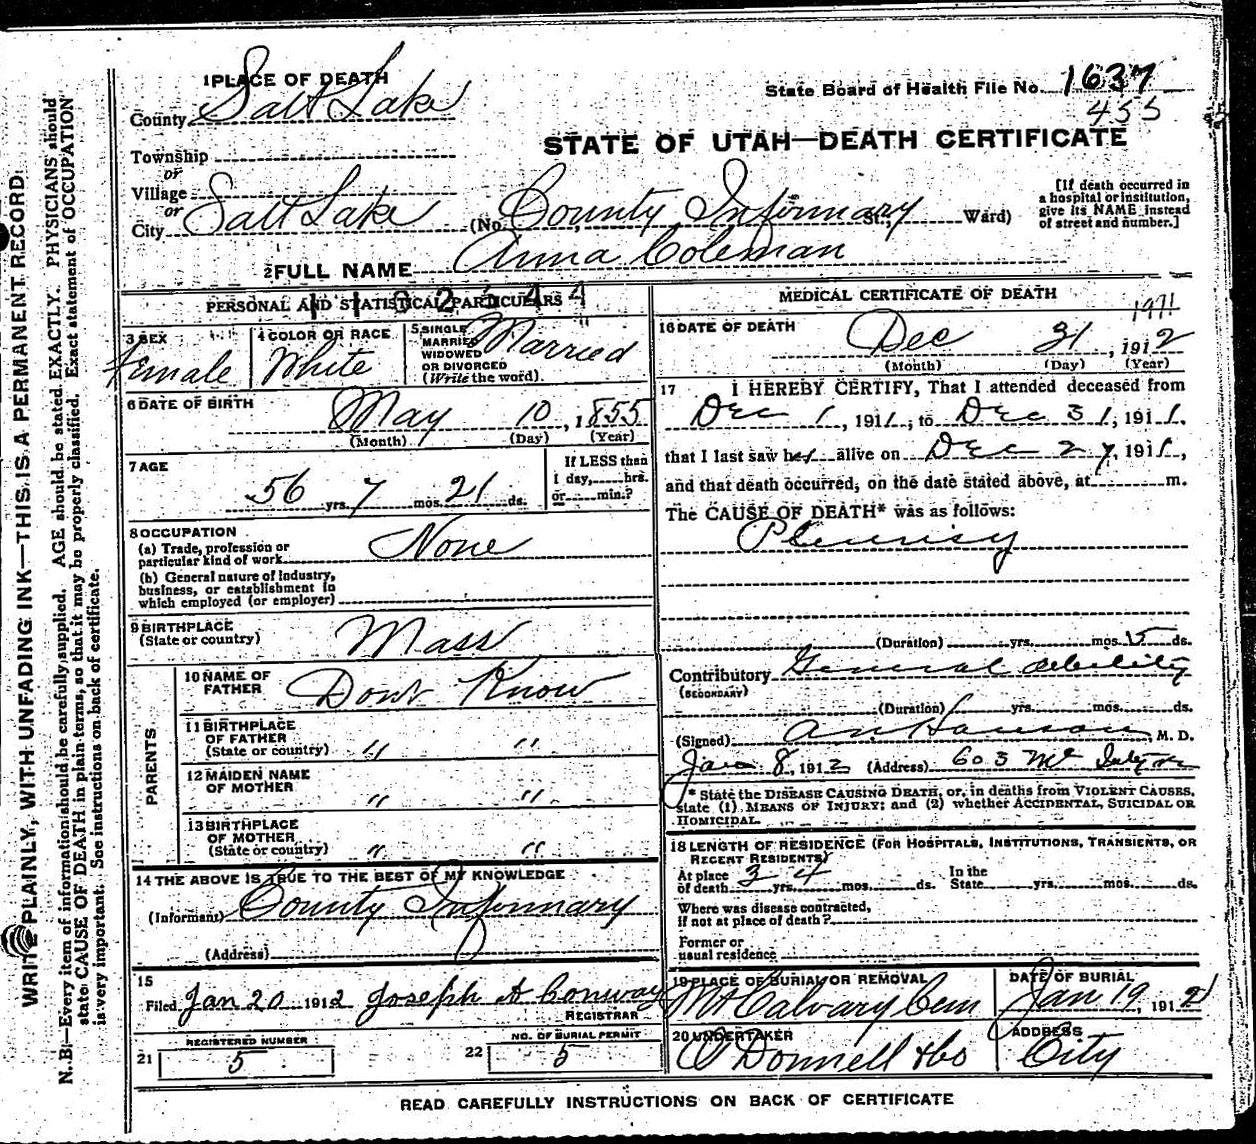 1 PLACE OF DEATH
County Salt Lake
Township
or
Village
or
City Salt Lake (No. County Infirmary St.; Ward)
State Board of Health File No. 1637
455
STATE OF UTAH—DEATH CERTIFICATE
[If death occurred in
a hospital or institution,
give its NAME instead
of street and number.]
2 FULL NAME Anna Coleman
PERSONAL AND STATISTICAL PARTICULARS
3 SEX
Female
4 COLOR OR RACE
White
5 SINGLE
MARRIED
WIDOWED
OR DIVORCED
(Write the word).
Married
6 DATE OF BIRTH
May 10, 1855
(Month) (Day) (Year)
7 AGE
56 yrs. 7 mos. 21 ds.
If LESS than
1 day, hrs.
or min.?
8 OCCUPATION
(a) Trade, profession or
particular kind of work None
(b) General nature of industry,
business, or establishment in
which employed (or employer)
9 BIRTHPLACE
(State or country) Mass
PARENTS
10 NAME OF
FATHER Dont Know
11 BIRTHPLACE
OF FATHER
(State or country) " "
12 MAIDEN NAME
OF MOTHER " "
13 BIRTHPLACE
OF MOTHER
(State or country) " "
14 THE ABOVE IS TRUE TO THE BEST OF MY KNOWLEDGE
(Informant) County Infirmary
(Address)
15
Filed Jan 20 1912 Joseph A Conway
REGISTRAR
REGISTERED NUMBER
21 5
NO. OF BURIAL PERMIT
22 5
MEDICAL CERTIFICATE OF DEATH
1911
16 DATE OF DEATH
Dec 31, 1912
(Month) (Day) (Year)
17 I HEREBY CERTIFY, That I attended deceased from
Dec 1, 1911, to Dec 31, 1911.
that I last saw her alive on Dec 27, 1911,
and that death occurred, on the date stated above, at m.
The CAUSE OF DEATH* was as follows:
Pleurisy
(Duration) yrs. mos. 15 ds.
Contributory General debility
(SECONDARY)
(Duration) yrs. mos. ds.
(Signed) Hanson, M. D.
Jan 8, 1912 (Address) 603
* State the DISEASE CAUSING DEATH, or, in deaths from VIOLENT CAUSES,
state (1) MEANS OF INJURY; and (2) whether ACCIDENTAL, SUICIDAL OR
HOMICIDAL.
18 LENGTH OF RESIDENCE (FOR HOSPITALS, INSTITUTIONS, TRANSIENTS, OR
RECENT RESIDENTS)
At place
of death 3 yrs. 4 mos. ds.
In the
State yrs. mos. ds.
Where was disease contracted,
if not at place of death?
Former or
usual residence
19 PLACE OF BURIAL OR REMOVAL
Mt Calvary Cem
DATE OF BURIAL
Jan 19, 1912
20 UNDERTAKER
O'Donnell & Co
ADDRESS
City
READ CAREFULLY INSTRUCTIONS ON BACK OF CERTIFICATE
WRITE PLAINLY, WITH UNFADING INK—THIS IS A PERMANENT RECORD.
N. B.—Every item of information should be carefully supplied. AGE should be stated EXACTLY. PHYSICIANS should
state CAUSE OF DEATH in plain terms, so that it may be properly classified. Exact statement of OCCUPATION
is very important. See instructions on back of certificate.